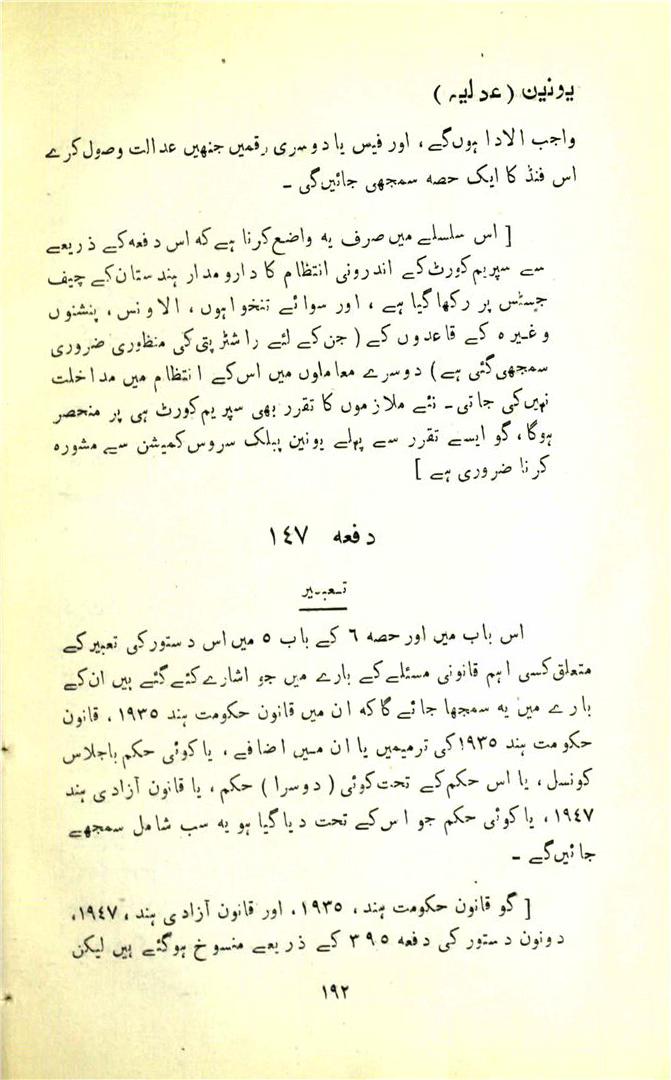 یونین (عدلیہ)
واجب الادا ہوں گے، اور فیس یا دوسری رقمیں جنھیں عدالت وصول کرے
اس فنڈ کا ایک حصہ سمجھی جائیں گی ۔
[ اس سلسلے میں صرف یہ واضع کرنا ہے کہ اس دفعہ کے ذریعے
سے سپریم کورٹ کے اندرونی انتظام کا دارومدار ہندستان کے چیف
جسٹس پر رکھا گیا ہے، اور سوائے تنخواہوں، الاونس، پنشنوں
وغیرہ کے قاعدوں کے (جن کے لئے راشٹرپتی کی منظوری ضروری
سمجھی گئی ہے) دوسرے معاملوں میں اس کے انتظام میں مداخلت
نہیں کی جاتی ۔ نئے ملازموں کا تقرر بھی سپریم کورٹ ہی پر منحصر
ہوگا، گو ایسے تقرر سے پہلے یونین پبلک سروس کمیشن سے مشورہ
کرنا ضروری ہے ]
دفعہ ١٤٧
تعبیر
اس باب میں اور حصہ ٦ کے باب ٥ میں اس دستور کی تعبیر کے
متعلق کسی اہم قانونی مسئلے کے بارے میں جو اشارے کئے گئے ہیں ان کے
بارے میں یہ سمجھا جائے گا کہ ان میں قانون حکومت ہند ١٩٣٥، قانون
حکومت ہند ١٩٣٥ کی ترمیمیں یا ان میں اضافے، یا کوئی حکم باجلاس
کونسل، یا اس حکم کے تحت کوئی (دوسرا) حکم، یا قانون آزادی ہند
١٩٤٧، یا کوئی حکم جو اس کے تحت دیا گیا ہو یہ سب شامل سمجھے
جائیں گے ۔
[ گو قانون حکومت ہند، ١٩٣٥، اور قانون آزادی ہند، ١٩٤٧،
دونوں دستور کی دفعہ ٣٩٥ کے ذریعے منسوخ ہوگئے ہیں لیکن
١٩٢